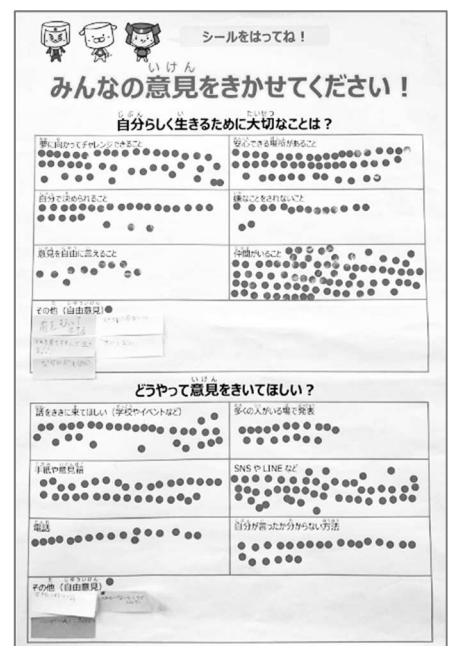 シールをはってね！
みんなの意見をきかせてください！
自分らしく生きるために大切なことは？
夢に向かってチャレンジできること
安心できる場所があること
自分で決められること
嫌なことをされないこと
意見を自由に言えること
仲間がいること
その他（自由意見）
どうやって意見をきいてほしい？
話をききに来てほしい（学校やイベントなど）
多くの人がいる場で発表
手紙や意見箱
SNS や LINE など
電話
自分が言ったか分からない方法
その他（自由意見）